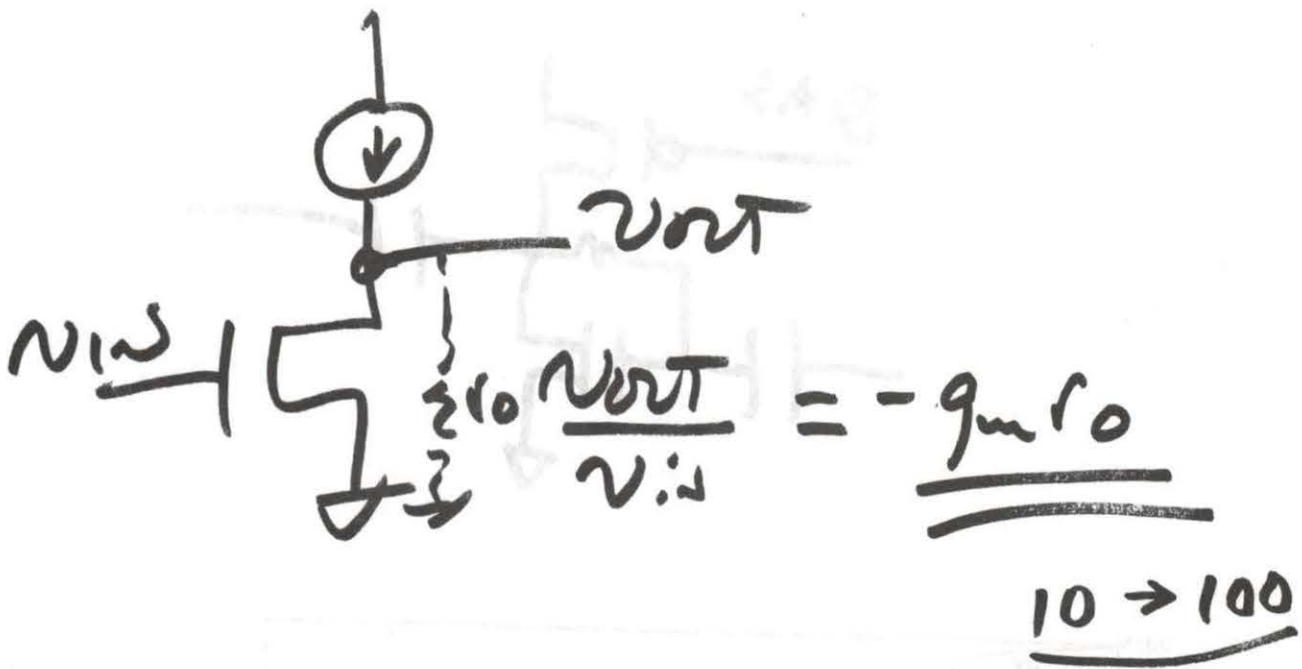 vout
vin
ro vout/vin = -gmro
10 → 100